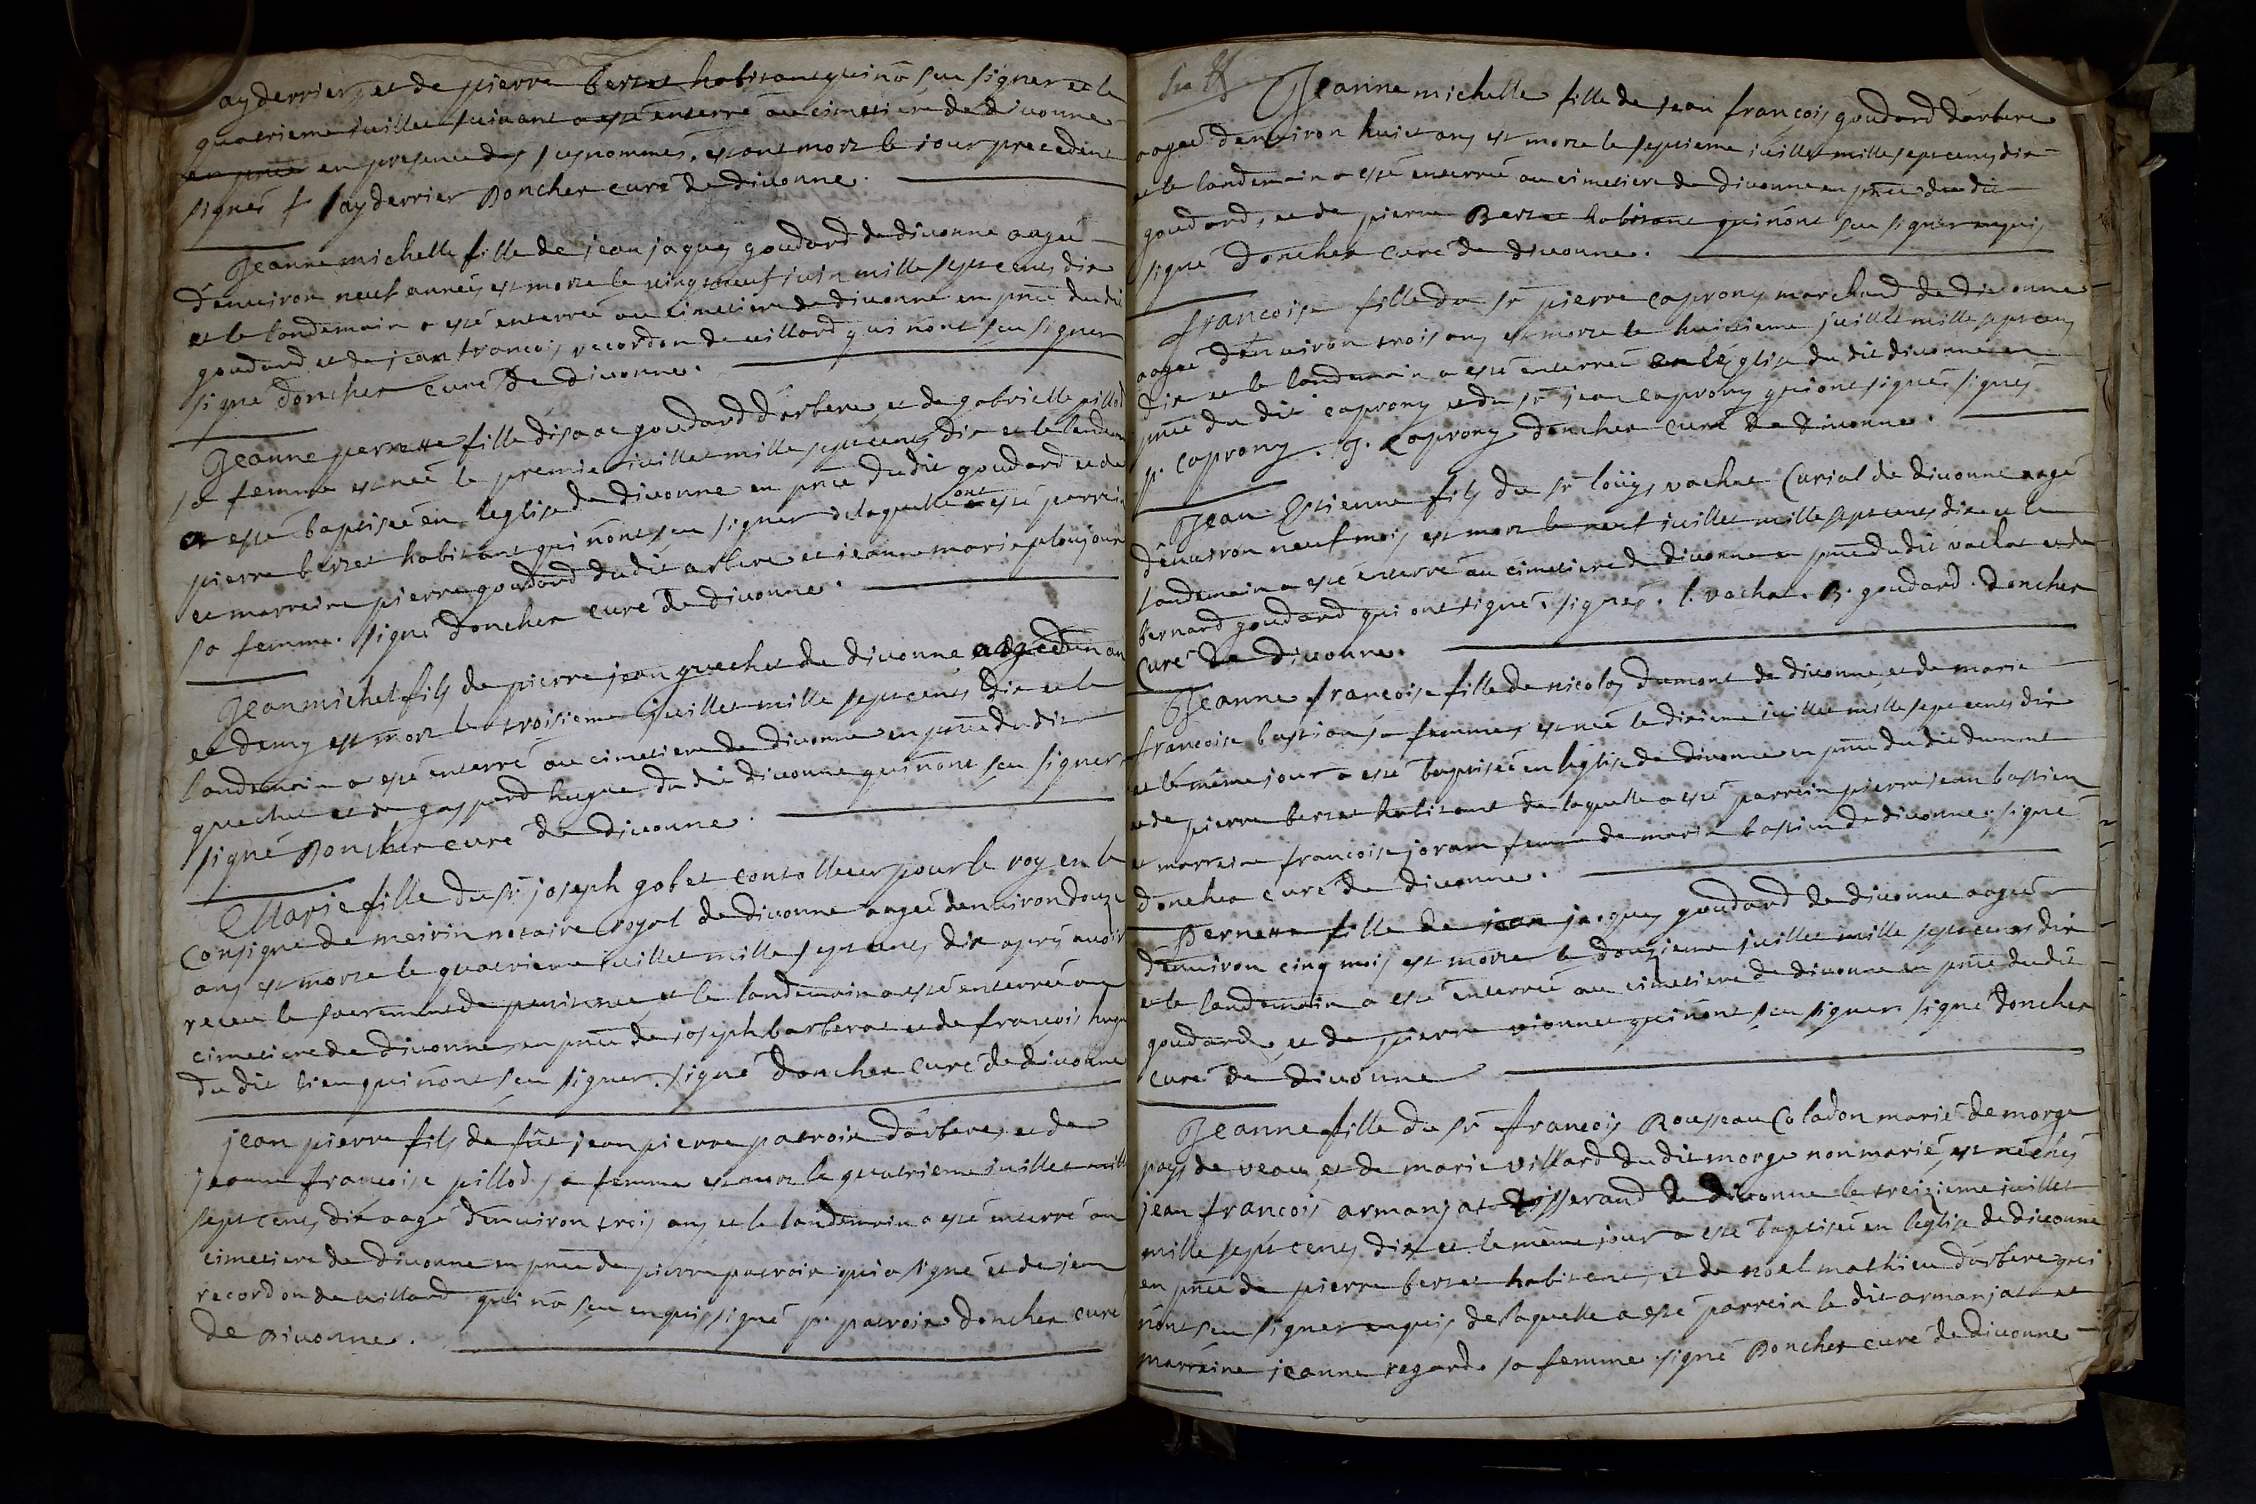 ayderrier, et de pierre berzet habitant qui n'a sceu signer et le
quatrieme juillet suivant a esté enterré au cimetiere de divonne
en pnce en presence des susnommés, estant mort le jour precedent
signés f ayderrier Doncher curé de divonne.
Jeanne michelle fille de jean jaques goudard de divonne aagée
d'environ neuf années est morte le vingtneuf juin mille sept cens dix
et le landemain a esté enterrée au cimetiere de divonne en pnce du dit
goudard et de jean francois recordon de villard qui n'ont sceu signer
signé doncher curé de divonne.
Jeanne pernette fille d'isaac goudard d'arbere, et de gabrielle pillod
sa femme est née le premie juillet mille sept cens dix et le landem
a esté baptisée en l'eglise de divonne en pnce du dit goudard et de
pierre berzet habitant qui n'ont sceu signer de laquelle ont esté parrein
et marreine pierre goudard du dit arbere et jeanne marie ploujoux
sa femme. signé doncher curé de divonne.
Jean michel fils de pierre jean gruechet de divonne aagé d'un an
et demy est mort le troisieme juillet mille sept cens dix et le
landemain a esté enterré au cimetiere de divonne en pnce du dit
gruechet et de gaspard hugue du dit divonne qui n'ont sceu signer
signé Doncher curé de divonne.
Marie fille du sr joseph gobet contolleur pour le roy en la
consigne de meirin notaire royal de divonne aagée d'environ douze
ans est morte le quatrieme juillet mille sept cens dix après avoir
receu le sacrement de penitence et le landemain a esté enterrée au
cimetiere de divonne en pnce de joseph barberat et de francois hugue
du dit lieu qui n'ont sceu signer. signé doncher curé de divonne
jean pierre fils de fût jean pierre patroix d'arbere, et de
jeanne françoise pillod sa femme est mort le quatrieme juillet mille
sept cens dix aagé d'environ trois ans et le landemain a esté enterré au
cimetiere de divonne en pnce de pierre patroix qui a signé et de jean
recordon de villard qui n'a sceu enquis signé p. patroix doncher curé
de Divonne.
Jeanne michelle fille de jean françois goudard d'arbere
aagée d'environ huict ans est morte le septieme juillet mille sept cens dix
et le landemain a esté enterrée au cimetiere de divonne en pnce du dit
goudard, et de pierre Berzet habitant qui n'ont sceu signer enquis
signé doncher curé de divonne.
francoise fille du sr pierre caprony marchand de divonne
aagée d'environ trois ans est morte le huictieme juillet mille sept cens
dix et le landemain a esté enterrée en l'église du dit divonne en
pnce du dit caprony et du sr jean caprony qui ont signés signés
p. caprony. J. caprony doncher curé de divonne.
Jean Estienne fils du sr loüys vachat Curial de divonne aagé
d'environ neuf mois est mort le neuf juillet mille sept cens dix et le
landemain a esté enterré au cimetiere de divonne en pnce du dit vachat et de
bernard goudard qui ont signé. signés. l. vachat. B. goudard. doncher
curé de divonne.
Jeanne françoise fille de nicolas dumont de divonne, et de marie
francoise bastian sa femme est née le dixieme juillet mille sept cens dix
et le même jour a esté baptisée en l'église de divonne en pnce du dit dumont
et de pierre berzet habitant de laquelle a esté parrein pierre jean bastian
et marreine francoise joram femme de marin bastian de divonne, signé
doncher curé de divonne.
Pernette fille de jean jacques goudard de divonne aagée
d'environ cinq mois est morte le douzieme juillet mille sept cens dix
et le landemain a esté enterrée au cimetiere de divonne en pnce du dit
goudard, et de pierre vionnet qui n'ont sceu signer signé doncher
curé de divonne
Jeanne fille du sr françois Rousseau Coladon marié de morge
pays de veau, et de marie villard du dit morge non marié, est née chés
jean francois armanjat tisserand de divonne le treizieme juillet
mille sept cens dix et le même jour a esté baptisée en l'eglise de divonne
en pnce de pierre berzet habitent, et de noel mathieu d'arbere qui
n'ont sceu signer enquis de laquelle a esté parrein le dit armanjat et
marreine jeanne regard sa femme signé Doncher curé de divonne